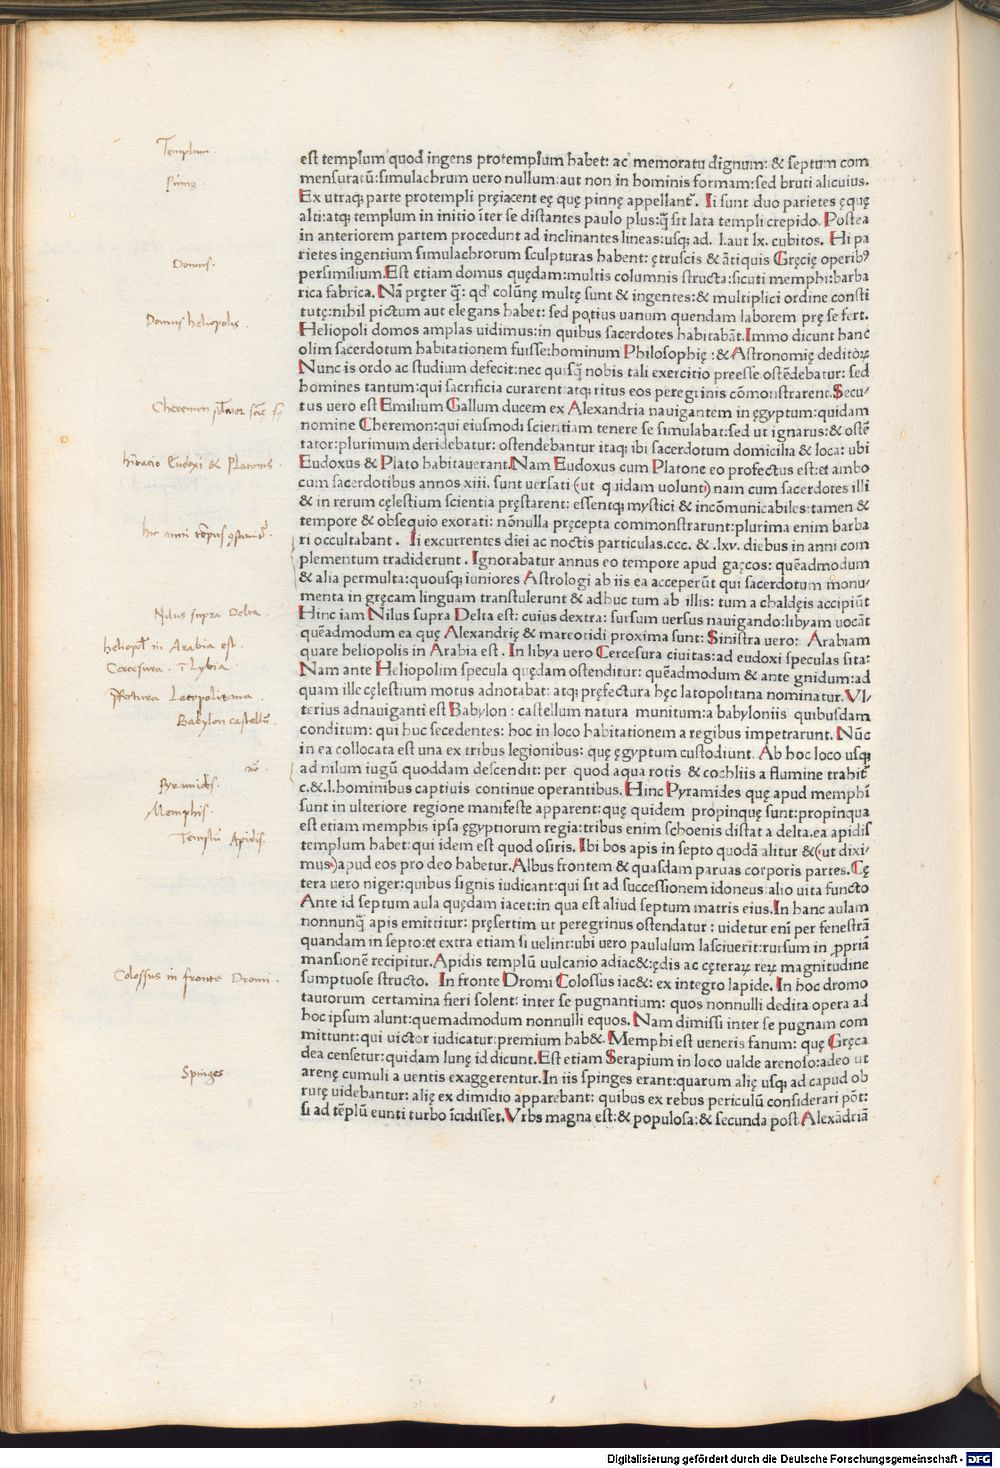 est templum quod ingens protemplum habet: ac memoratu dignum: & septum com
mensuratū: simulachrum uero nullum: aut non in hominis formam: sed bruti alicuius.
Ex utraq; parte protempli pręiacent eę quę pinnę appellant᷑. Ii sunt duo parietes ęquę
alti: atq; templum in initio īter se distantes paulo plus: q̃ sit lata templi crepido. Postea
in anteriorem partem procedunt ad inclinantes lineas: usq; ad. l. aut lx. cubitos. Hi pa
rietes ingentium simulachrorum sculpturas habent: ętruscis & ātiquis Gręcię operibꝰ
persimilium. Est etiam domus quędam: multis columnis structa: sicuti memphi: barba
rica fabrica. Nā pręter q̃: qd̓ colūnę multę sunt & ingentes: & multiplici ordine consti
tutę: nihil pictum aut elegans habet: sed potius uanum quendam laborem prę se fert.
Heliopoli domos amplas uidimus: in quibus sacerdotes habitabāt. Immo dicunt hanc
olim sacerdotum habitationem fuisse: hominum Philosophię: & Astronomię deditoꝝ
Nunc is ordo ac studium defecit: nec quisq̃ nobis tali exercitio preesse ostēdebatur: sed
homines tantum: qui sacrificia curarent: atq; ritus eos peregrinis cōmonstrarent. Secu/
tus uero est Emilium Gallum ducem ex Alexandria nauigantem in ęgyptum: quidam
nomine Cheremon: qui eiusmodi scientiam tenere se simulabat: sed ut ignarus: & ostē
tator: plurimum deridebatur: ostendebantur itaq; ibi sacerdotum domicilia & loca: ubi
Eudoxus & Plato habitauerant. Nam Eudoxus cum Platone eo profectus est: et ambo
cum sacerdotibus annos xiii. sunt uersati (ut quidam uolunt) nam cum sacerdotes illi
& in rerum cęlestium scientia pręstarent: essentq; mystici & incōmunicabiles: tamen &
tempore & obsequio exorati: nōnulla pręcepta commonstrarunt: plurima enim barba
ri occultabant. Ii excurrentes diei ac noctis particulas. ccc. & . lxv. diebus in anni com
plementum tradiderunt. Ignorabatur annus eo tempore apud gaęcos: quēadmodum
& alia permulta: quousq; iuniores Astrologi ab iis ea acceperūt qui sacerdotum monu/
menta in gręcam linguam transtulerunt & adhuc tum ab illis: tum a chaldęis accipiūt
Hinc iam Nilus supra Delta est: cuius dextra: sursum uersus nauigando: libyam uocāt
quēadmodum ea quę Alexandrię & mareotidi proxima sunt: Sinistra uero: Arabiam
quare heliopolis in Arabia est. In libya uero Cercesura ciuitas: ad eudoxi speculas sita:
Nam ante Heliopolim specula quędam ostenditur: quēadmodum & ante gnidum: ad
quam ille cęlestium motus adnotabat: atq; pręfectura hęc latopolitana nominatur. Vl/
terius adnauiganti est Babylon: castellum natura munitum: a babyloniis quibusdam
conditum: qui huc secedentes: hoc in loco habitationem a regibus impetrarunt. Nūc
in ea collocata est una ex tribus legionibus: quę ęgyptum custodiunt. Ab hoc loco usq;
ad nilum iugū quoddam descendit: per quod aqua rotis & cochliis a flumine trahit᷑
c. & . l. hominibus captiuis continue operantibus. Hinc Pyramides quę apud memphī
sunt in ulteriore regione manifeste apparent: quę quidem propinquę sunt: propinqua
est etiam memphis ipsa ęgyptiorum regia: tribus enim schoenis distat a delta. ea apidis
templum habet: qui idem est quod osiris. Ibi bos apis in septo quodā alitur & (ut dixi/
mus) apud eos pro deo habetur. Albus frontem & quasdam paruas corporis partes. Cę
tera uero niger: quibus signis iudicant: qui sit ad successionem idoneus alio uita functo
Ante id septum aula quędam iacet: in qua est aliud septum matris eius. In hanc aulam
nonnunq̃ apis emittitur: pręsertim ut peregrinus ostendatur: uidetur eni᷑ per fenestrā
quandam in septo: et extra etiam si uelint: ubi uero paululum lasciuerit: rursum in ꝓpriā
mansionē recipitur. Apidis templū uulcanio adiac&: ędis ac cęteraꝝ reꝝ magnitudine
sumptuose structo. In fronte Dromi Colossus iac&: ex integro lapide. In hoc dromo
taurorum certamina fieri solent: inter se pugnantium: quos nonnulli dedita opera ad
hoc ipsum alunt: quemadmodum nonnulli equos. Nam dimissi inter se pugnam com
mittunt: qui uictor iudicatur: premium hab&. Memphi est ueneris fanum: quę Gręca
dea censetur: quidam lunę id dicunt. Est etiam Serapium in loco ualde arenoso: adeo ut
arenę cumuli a uentis exaggerentur. In iis spinges erant: quarum alię usq; ad capud ob
rutę uidebantur: alię ex dimidio apparebant: quibus ex rebus periculū considerari pōt:
si ad tēplū eunti turbo īcidisset. Vrbs magna est: & populosa: & secunda post Alexādriā
Templum.
Pinnę.
Domus.
Domus heliopolis.
Cheremon
Eudoxi & Platonis.
Nilus supra Delta.
in Arabia est.
Cercesura. ī Lybia.
Latopolitana.
Babylon castellū.
Pyramides.
Memphis.
Templū Apidis.
Colossus in fronte Dromi.
Spinges.
Digitalisierung gefördert durch die Deutsche Forschungsgemeinschaft - DFG